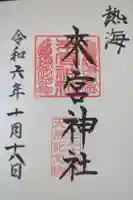 熱海
来宮神社
令和六年十月十八日